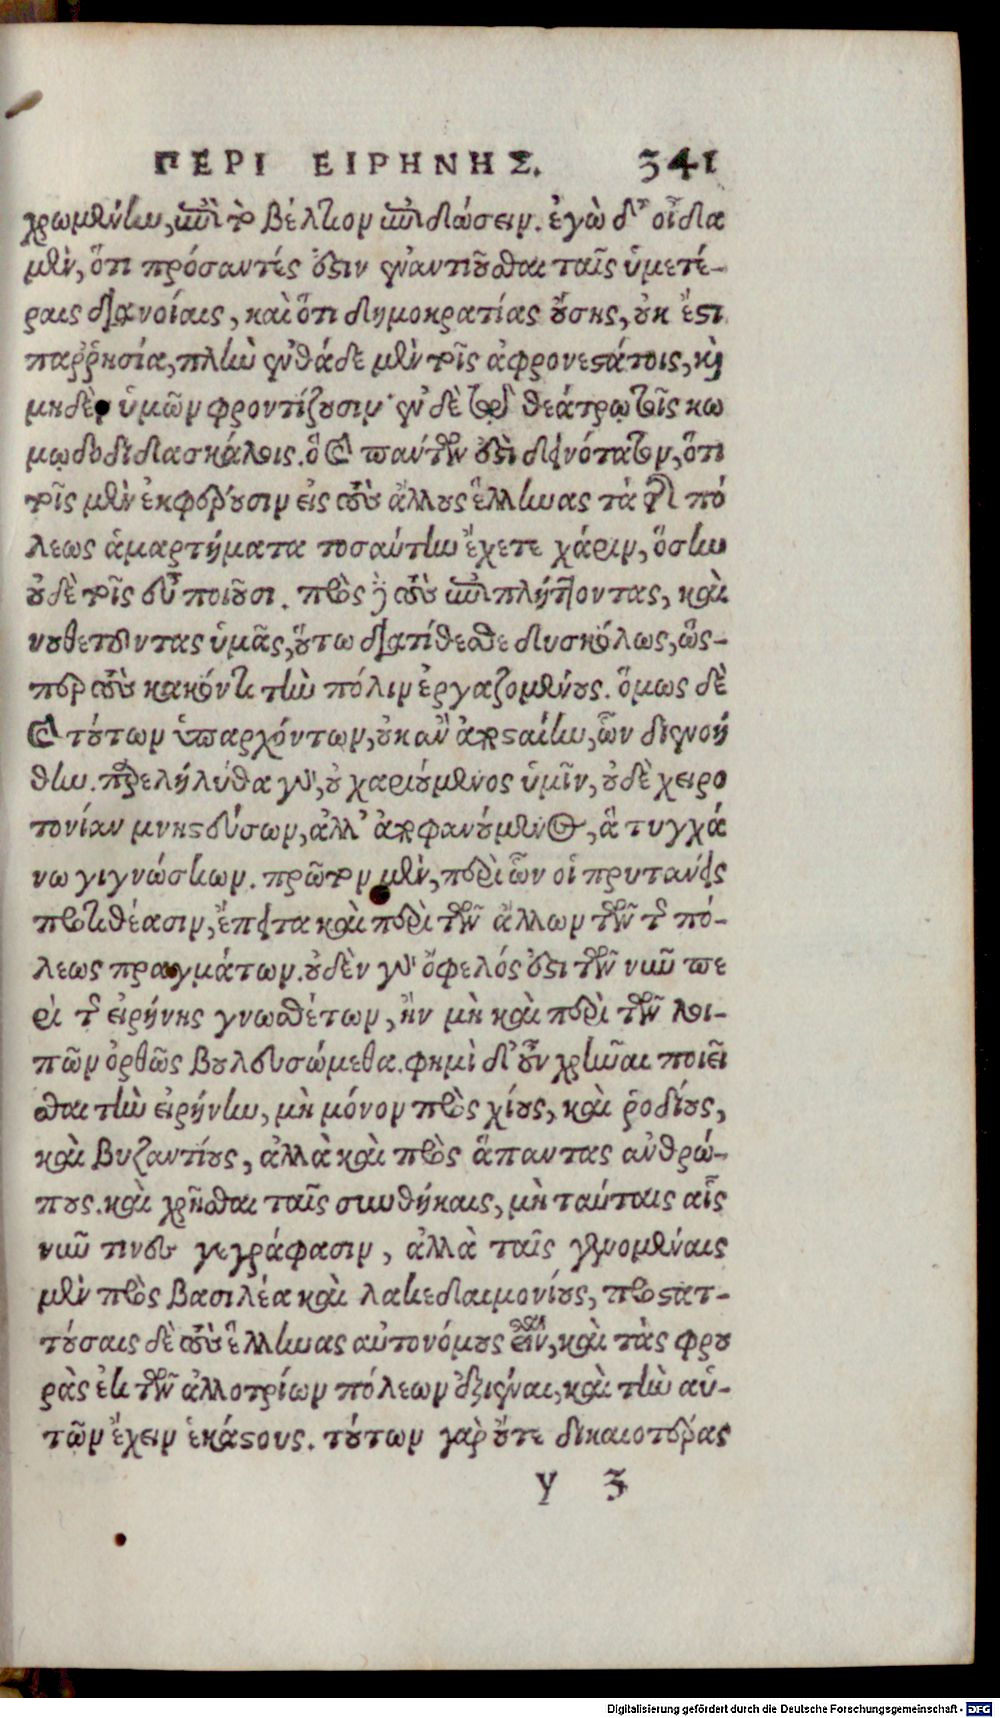 ΠΕΡΙ ΕΙΡΗΝΗΣ. 341
χρωμένην, ἐπὶ τὸ βέλτιον ἐπιδώσειν. ἐγὼ δ' οἶδα
μὲν, ὅτι πρόσαντές ἐστιν ἐναντιοῦσθαι ταῖς ὑμετέ-
ραις διανοίαις, καὶ ὅτι δημοκρατίας οὔσης, οὐκ ἔστι
παῤῥησία, πλὴν ἐνθάδε μὲν τοῖς ἀφρονεστάτοις, καὶ
μηδὲν ὑμῶν φροντίζουσιν· ἐν δὲ τῷ θεάτρῳ τοῖς κω
μῳδοδιδασκάλοις. ὃ καὶ πάντων ἐστὶ δεινότατον, ὅτι
τοῖς μὲν ἐκφέρουσιν εἰς τοὺς ἄλλους ἕλληνας τὰ τῆς πό
λεως ἁμαρτήματα τοσαύτην ἔχετε χάριν, ὅσην
οὐδὲ τοῖς εὖ ποιοῦσι. πρὸς δὲ τοὺς ἐπιπλήττοντας, καὶ
νουθετοῦντας ὑμᾶς, οὕτω διατίθεσθε δυσκόλως, ὥς-
περ τοὺς κακόν τι τὴν πόλιν ἐργαζομένους. ὅμως δὲ
καὶ τούτων ὑπαρχόντων, οὐκ ἂν ἀποσταίην, ὧν διενοή
θην. παρελήλυθα γὰρ, οὐ χαριούμενος ὑμῖν, οὐδὲ χειρο
τονίαν μνηστεύσων, ἀλλ' ἀποφανούμενος, ἃ τυγχά
νω γιγνώσκων. πρῶτον μὲν, περὶ ὧν οἱ πρυτανεῖς
προτιθέασιν, ἔπειτα καὶ περὶ τῶν ἄλλων τῶν τῆς πό-
λεως πραγμάτων. οὐδὲν γὰρ ὄφελός ἐστι τῶν νῦν πε
ρὶ τῆς εἰρήνης γνωσθέτων, ἢν μὴ καὶ περὶ τῶν λοι-
πῶν ὀρθῶς βουλευσώμεθα. φημὶ δ' οὖν χρῆναι ποιεῖ
σθαι τὴν εἰρήνην, μὴ μόνον πρὸς χίους, καὶ ῥοδίους,
καὶ βυζαντίους, ἀλλὰ καὶ πρὸς ἅπαντας ἀνθρώ-
πους. καὶ χρῆσθαι ταῖς συνθήκαις, μὴ ταύταις αἷς
νῦν τινες γεγράφασιν, ἀλλὰ ταῖς γενομέναις
μὲν πρὸς βασιλέα καὶ λακεδαιμονίους, προστατ-
τούσαις δὲ τοὺς ἕλληνας αὐτονόμους εἶναι, καὶ τὰς φρου
ρὰς ἐκ τῶν ἀλλοτρίων πόλεων ἐξιέναι, καὶ τὴν αὑ-
τῶν ἔχειν ἑκάστους. τούτων γὰρ οὔτε δικαιοτέρας
y 3
Digitalisierung gefördert durch die Deutsche Forschungsgemeinschaft - DFG